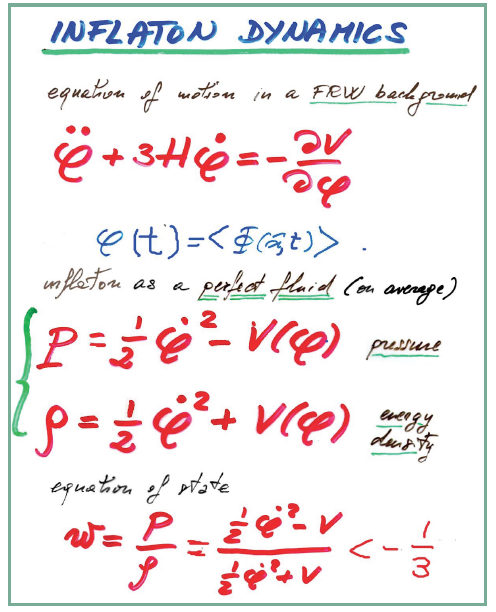 INFLATON DYNAMICS
equation of motion in a FRW background
φ̈ + 3Hφ̇ = - ∂V/∂φ
φ(t) = <Φ(x⃗,t)> .
inflaton as a perfect fluid (on average)
P = 1/2 φ̇² - V(φ) pressure
ρ = 1/2 φ̇² + V(φ) energy density
equation of state
w = P/ρ = (1/2 φ̇² - V)/(1/2 φ̇² + V) < - 1/3